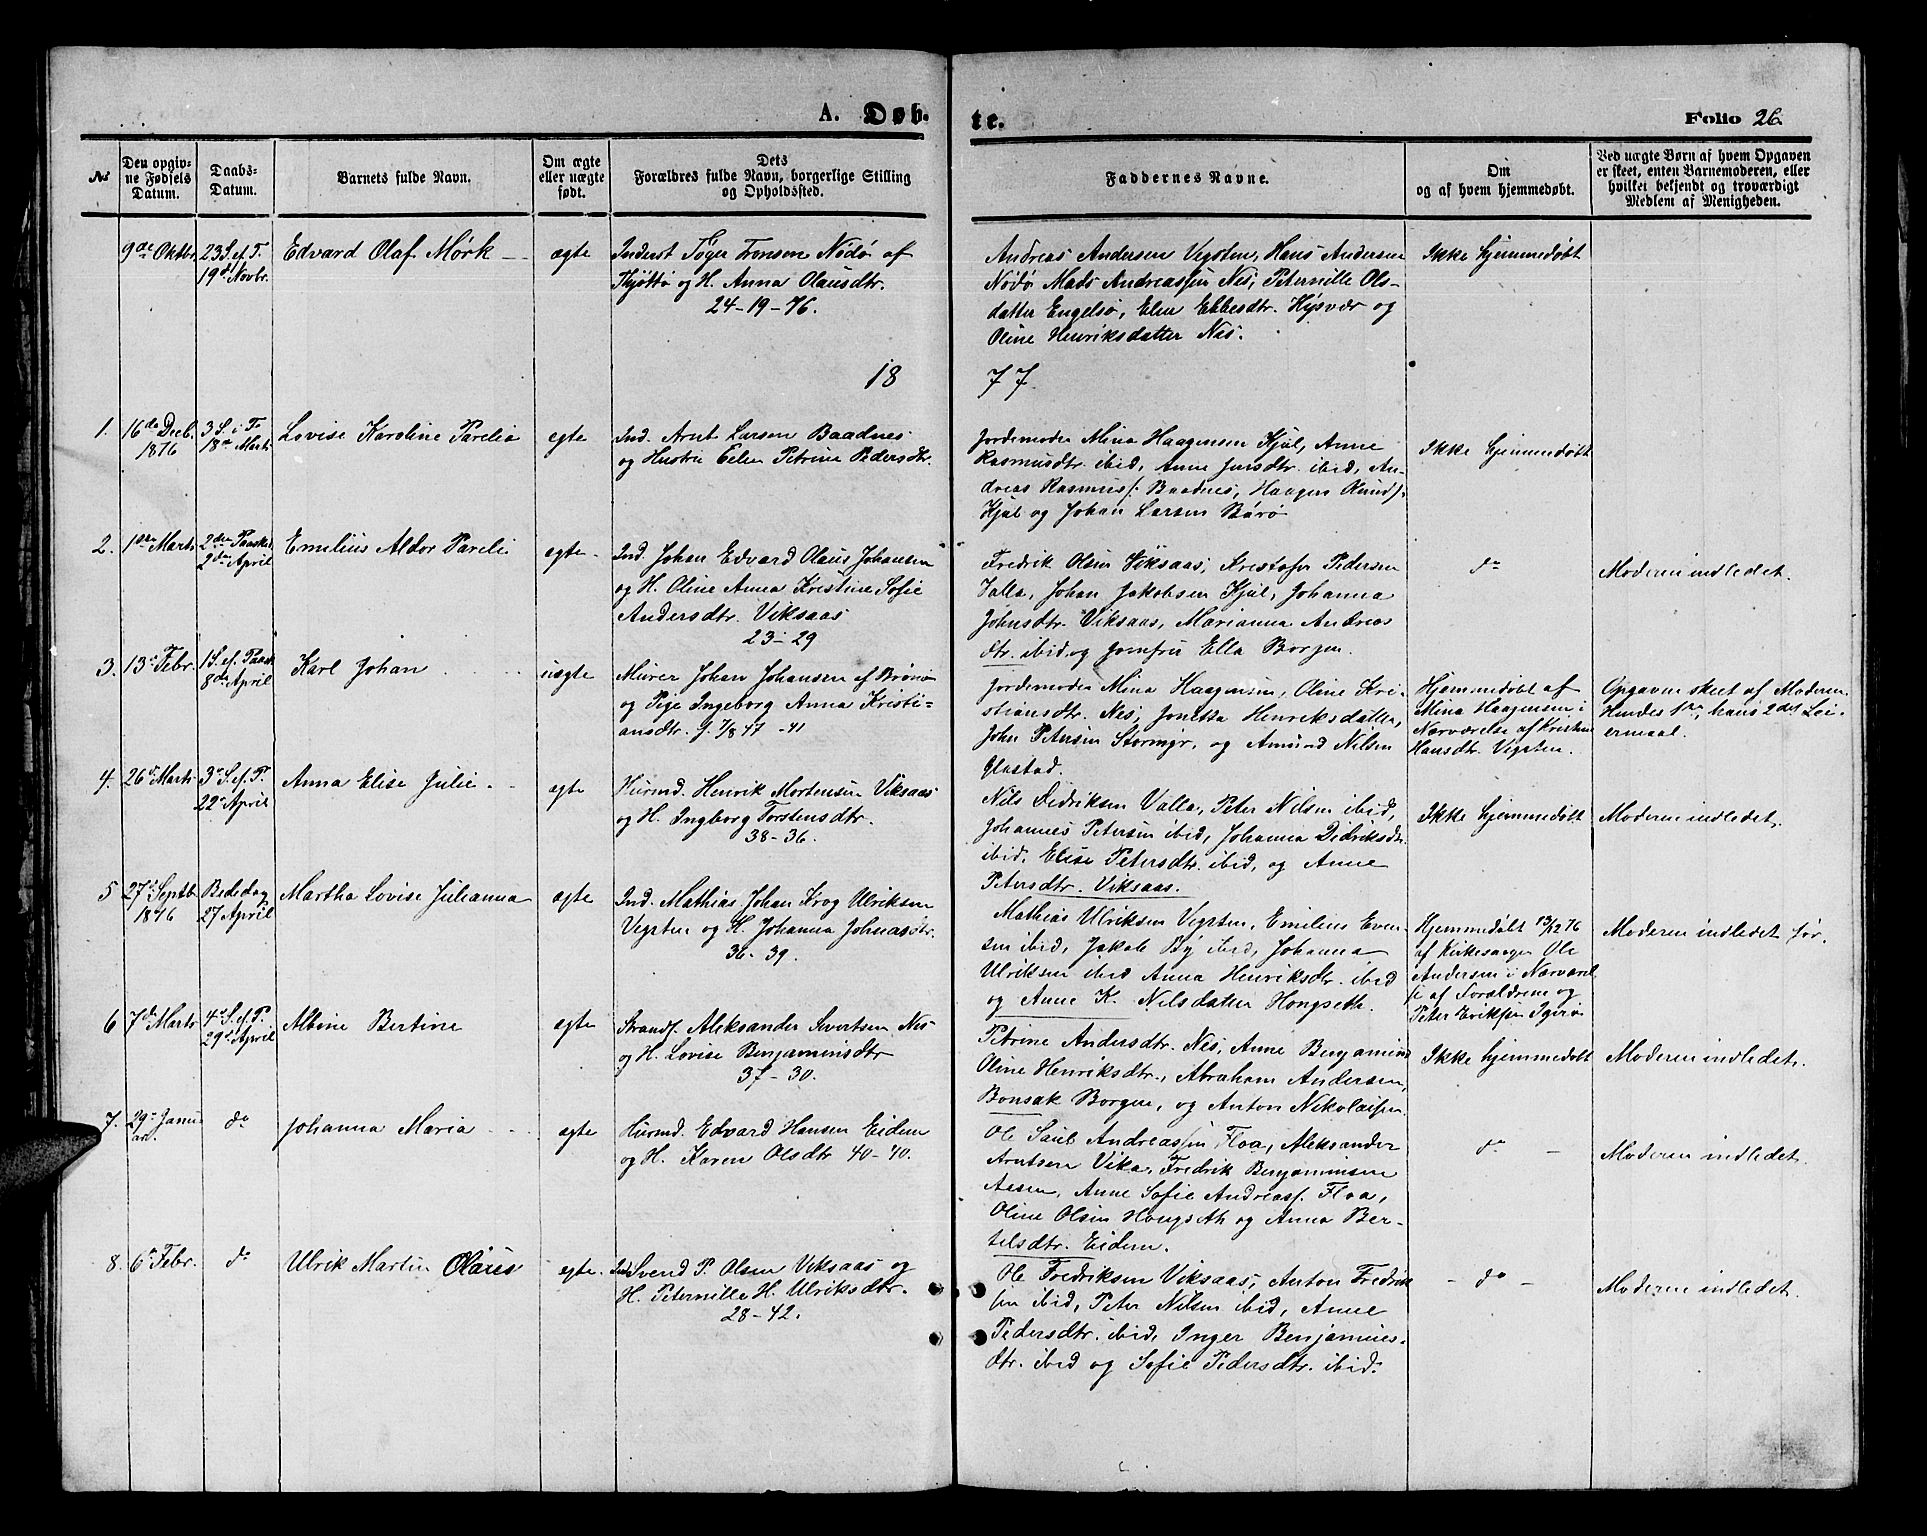 A. Døb- te. Folio 26.
№
Den opgiv-
ne Fødsels
Datum.
Daabs-
Datum.
Barnets fulde Navn.
Om ægte
eller uægte
født.
Dets
Forældres fulde Navn, borgerlige Stilling
og Opholdssted.
Faddernes Navne.
Om
og af hvem hjemmedøbt.
Ved uægte Børn af hvem Opgaven
er skeet, enten Barnemoderen, eller
hvilket bekjendt og troværdigt
Medlem af Menigheden.
9de Oktbr.
23 S. ef. T.
19de Novbr.
Edvard Olaf Mørk
ægte
Inderst Tøger Tronsen Nødø af
Thjøttø og H. Anna Olausdtr.
24-19-76.
Andreas Andersen Vegsten, Hans Andersen
Nødø Mads Andreassen Nes, Peternille Ols-
datter Engelsø, Elen Ebbesdtr. Hysvær og
Oline Henriksdatter Nes.
Ikke hjemmedøbt
18 77.
1.
16de Decb.
1876
3 S. i F.
18de Marts
Lovise Karoline Parelia
egte
Ind. Arnt Larsen Baadnes
og Hustru Elen Petrine Pedersdtr.
Jordemoder Mina Haagensen Kjul, Anne
Rasmusdtr. ibid, Anne Jensdtr. ibid, An-
dreas Rasmuss. Baadnes, Haagen Knuds.
Kjul og Johan Larsen Bärø
Ikke hjemmedøbt
2.
1ste Marts
2den Paaskd.
2den April
Emilius Aldor Pareli
egte-
Ind. Johan Edvard Olaus Johansen
og H. Oline Anna Kristine Sofie
Andersdtr. Viksaas
23-29
Fredrik Olsen Viksaas, Kristofer Pedersen
Valla, Johan Jakobsen Kjul, Johanna
Johnsdtr. Viksaas, Marianna Andreas
dtr. ibid. og Jomfru Ella Borgen.
do
Moderen indledet.
3.
13de Febr.
1 S. ef. Paask.
8de April
Karl Johan
uægte
Murer Johan Johansen af Brønø
og Pige Ingeborg Anna Kristi-
ansdtr. f. 7/8 47 -41
Jordemoder Mina Haagensen, Oline Kri-
stiansdtr. Nes, Jonetta Henriksdatter,
John Petersen Stormyr, og Amund Nilsen
Glastad.
Hjemmedøbt af
Mina Haagensen i
Nærværelse af Kristen
Hansdtr. Vegsten.
Opgaven skeet af Moderen.
Hendes 1ste, hans 2det Lei-
ermaal.
4.
26de Marts
3de S. ef. P.
22de April
Anna Elise Julie
egte
Husmd. Henrik Mortensen Viksaas
og H. Ingborg Torstensdtr.
38-36.
Nils Dedriksen Valla, Peter Nilsen ibid,
Johannes Petersen ibid, Johanna Dedriksdtr
ibid, Elise Petersdtr. ibid, og Anne
Petersdtr. Viksaas.
Ikke hjemmedøbt
Moderen indledet.
5
27de Septb.
1876
Bededag
27 April
Martha Lovise Julianna
egte
Ind. Mathias Johan Krog Ulriksen
Vegsten og H. Johanna Johnasdtr.
36-39.
Mathias Ulriksen Vegsten, Emilius Even-
sen ibid, Jakob By ibid, Johanna
Ulriksen ibid Anna Henriksdtr. ibid
og Anne K. Nilsdatter Hongseth.
Hjemmedøbt 13/12 76
af Kirkesanger Ole
Andersen i Nærværel
se af Forældrene og
Peter Eriksen Igerø
Moderen indledet før.
6
7de Marts
4de S. ef. P.
29de April
Albine Bertine
egte
Strands. Aleksander Sivertsen Nes
og H. Lovise Benjaminsdtr
37-30.
Petrine Andersdtr. Nes, Anne Benjamins
Oline Henriksdtr., Abraham Andersen,
Bonsak Borgen, og Anton Nikolaisen
Ikke hjemmedøbt
Moderen indledet.
7.
29de Janu
ar.
do
Johanna Maria
egte
Husmd. Edvard Hansen Eidem
og H. Karen Olsdtr 40-40.
Ole Saul Andreassen Floa, Aleksander
Arntsen Vika, Fredrik Benjaminsen
Aasen, Anne Sofie Andreass. Floa,
Oline Olsen Hongseth og Anna Ber-
telsdtr. Eidem.
do -
Moderen indledet.
8.
6te Febr.
do
Ulrik Martin Olaus
egte.
Ind. Svend P. Olsen Viksaas og
H. Peternille H. Ulriksdtr.
28-42.
Ole Fredriksen Viksaas, Anton Fredrik
sen ibid, Peter Nilsen ibid, Anne
Pedersdtr. ibid, Inger Benjamins-
dtr. ibid og Sofie Pedersdtr. ibid.
- do -
Moderen indledet.